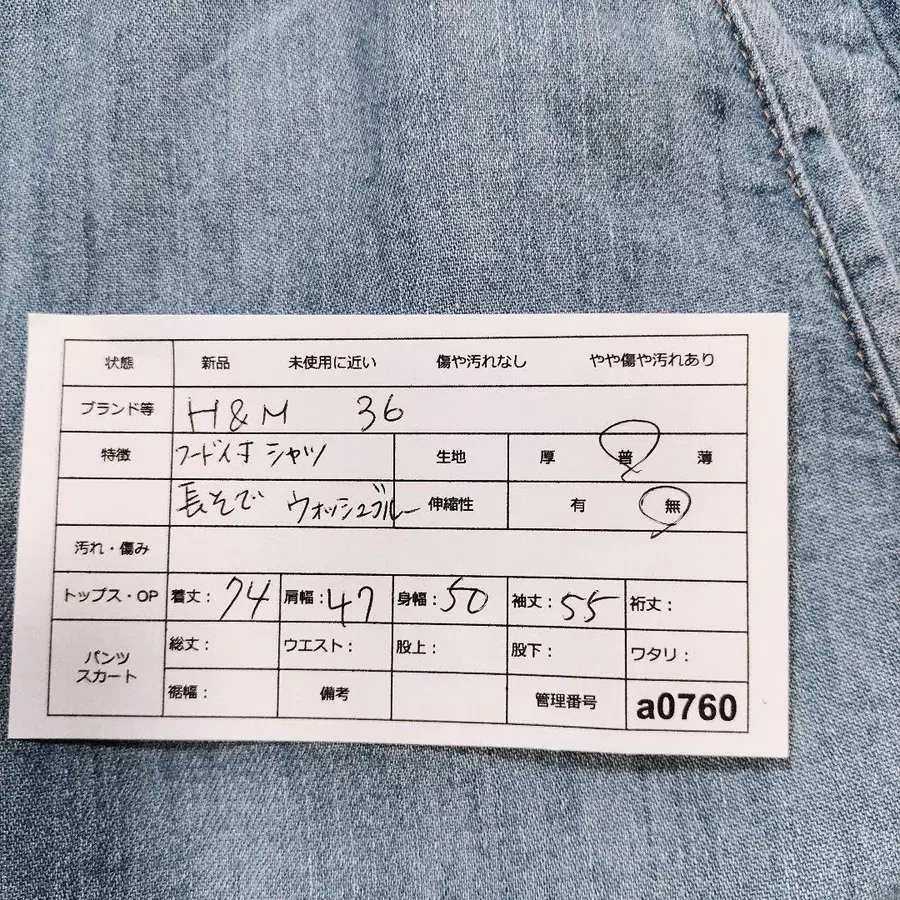 状態 新品 未使用に近い 傷や汚れなし やや傷や汚れあり
ブランド等 H&M 36
特徴 フード付 シャツ 生地 厚 普 薄
長そで ウォッシュブルー 伸縮性 有 無
汚れ・傷み
トップス・OP 着丈: 74 肩幅: 47 身幅: 50 袖丈: 55 裄丈:
パンツ スカート 総丈: ウエスト: 股上: 股下: ワタリ:
裾幅: 備考 管理番号 a0760